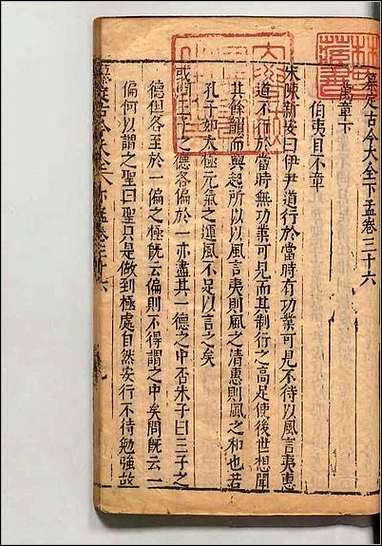 纂定古今大全下孟卷三十六
萬章下
伯夷目不章
朱陳新安曰伊尹道行於當時有功業可見不待以風言夷惠
道不行於當時無功業可見而其制行之高足使後世想聞
其餘韻而興起所以以風言夷則風之清惠則風之和也若
孔子如太極元氣之運風不足以言之矣
或問三子之德各偏於一亦盡其一德之中否朱子曰三子之
德但各至於一偏之極既云偏則不得謂之中矣問既云一
偏何以謂之聖曰聖只是做到極處自然安行不待勉強故